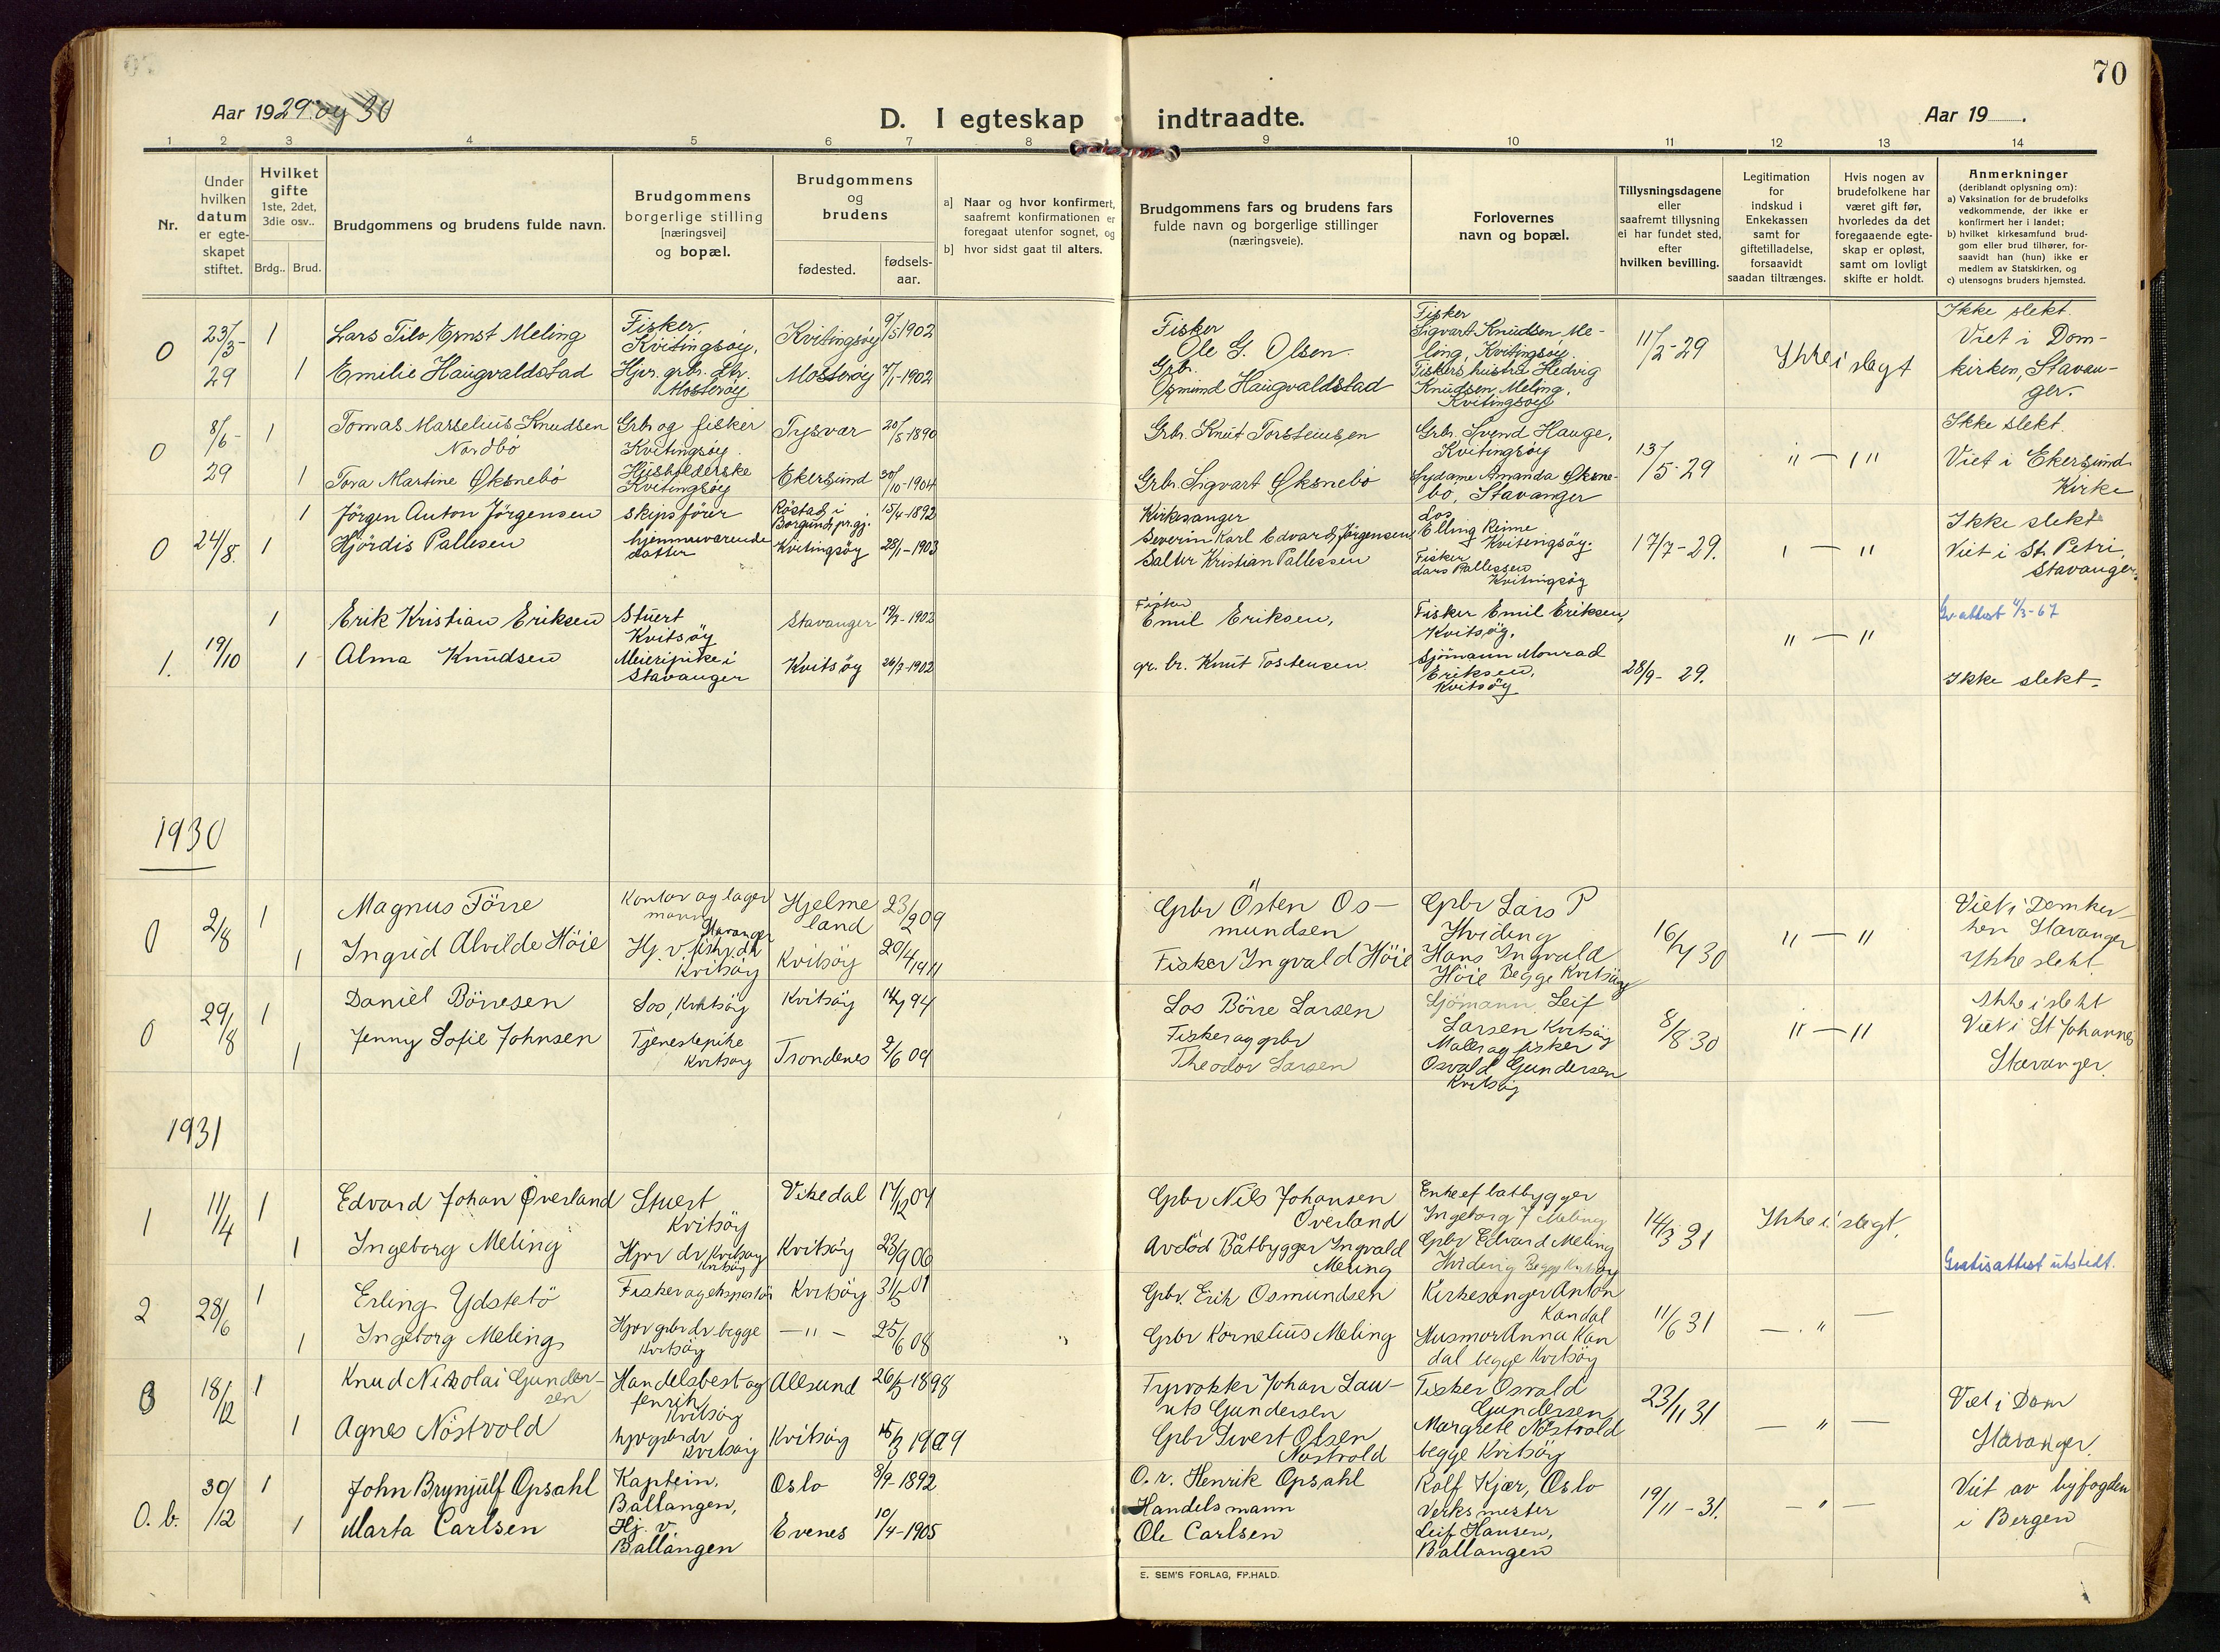 70
Aar 1929 og 30
D. I egteskap indtraadte.
Aar 19 .
1 2 3 4 5 6 7 8 9 10 11 12 13 14
Nr.
Under hvilken datum er egteskapet stiftet.
Hvilket gifte 1ste, 2det, 3die osv..
Brdg.. Brud.
Brudgommens og brudens fulde navn.
Brudgommens borgerlige stilling [næringsvei] og bopæl.
Brudgommens og brudens
fødested.
fødsels-aar.
a] Naar og hvor konfirmert, saafremt konfirmationen er foregaat utenfor sognet, og
b] hvor sidst gaat til alters.
Brudgommens fars og brudens fars fulde navn og borgerlige stillinger (næringsveie).
Forlovernes navn og bopæl.
Tillysningsdagene eller saafremt tillysning ei har fundet sted, efter hvilken bevilling.
Legitimation for indskud i Enkekassen samt for giftetilladelse, forsaavidt saadan tiltrænges.
Hvis nogen av brudefolkene har været gift før, hvorledes da det foregaaende egteskap er opløst, samt om lovligt skifte er holdt.
Anmerkninger (deriblandt oplysning om):
a) Vaksination for de brudefolks vedkommende, der ikke er konfirmert her i landet;
b) hvilket kirkesamfund brudgom eller brud tilhører, forsaavidt han (hun) ikke er medlem av Statskirken, og
c) utensogns bruders hjemsted.
0 23/3-29 1 Lars Tilo Ernst Meling Fisker, Kvitingsøy. Kvitingsøy 9/5-1902
1 Emilie Haugvaldstad Hjv. grbr. dtr. Mosterøy Mosterøy 7/1-1902
Fisker Ole G. Olsen.
Grb. Osmund Haugvaldstad
Fisker Sigvart Knudsen Meling, Kvitingsøy.
Fiskers hustru Hedvig Knudsen Meling, Kvitingsøy
11/2-29 Ikke i slagt
Ikke slekt. Viet i Domkirken, Stavanger.
0 8/6-29 1 Tomas Marselius Knudsen Nordbö Grbr og fisker Kvitingsøy. Tysvær 20/5-1890
1 Tora Martine Øksnebö Husholderske Kvitingsøy Ekersund 30/10-1904
Grbr. Knut Torsteinsen
Grbr. Sigvart Øksnebö
Grbr. Svend Hauge, Kvitingsøy
Sydame Amanda Øksnebö, Stavanger
13/5-29 " — " Ikke slekt.
Viet i Ekersund Kirke
0 24/8. 1 Jörgen Anton Jörgensen skipsförer Röstad i Borgund, pr.gj. 15/4-1892
1 Hjördis Pallesen hjemmeværende datter Kvitingsöy 28/1-1903
Kirkesanger Severin Karl Edvard Jörgensen
Salter Kristian Pallesen
Los Elling Reime Kvitengsöy.
Fisker Lars Pallesen Kvitingsöy
17/7-29. " — " Ikke slekt
Viet i St. Petri, Stavanger.
1. 19/10 1 Erik Kristian Eriksen Stuert Kvitsöy Stavanger 19/2-1902
1 Alma Knudsen Meieripike i Stavanger Kvitsöy 26/7-1902
Fisker Emil Eriksen,
gr. br. Knut Tostensen
Fisker Emil Eriksen, Kvitsöy.
Sjömann Monrad Eriksen, Kvitsöy
28/9-29. " — "
Gr. attest 4/3-67
Ikke slekt.
1930
0 2/8 1 Magnus Törre Kontor og lagermann Stavanger Hjelmeland 23/2 09
1 Ingrid Alvilde Höie Hj. v. fiskr. dr Kvitsöy Kvitsöy 20/4 1911
Gpbr Östen Osmundsen
Fisker Ingvald Höie
Gpbr Lars P Hviding
Hans Ingvald Höie Begge Kvitsöy
16/7 30 " — "
Viet i Domkerken Stavanger
Ikke slekt
0 29/8 1 Daniel Börresen Los, Kvitsöy Kvitsöy 94
1 Jenny Sofie Johnsen Tjenestepike Kvitsøy Trondenes 2/6 09
Los Börre Larsen
Fisker og gpbr Theodor Larsen
Sjömann Leif Larsen Kvitsöy
Maler og fisker Osvald Gundersen Kvitsöy
8/8 30 " — "
Ikke i slekt
Viet i St Johannes Stavanger.
1931
1 11/4 1 Edvard Johan Øverland Stuert Kvitsöy Vikedal 17/12 07
1 Ingeborg Meling Hjvr dr Kvitsøy Kvitsöy Kvitsöy 23/9 06
Gpbr Nils Johansen Överland
Avdöd Båtbygger Ingvald Meling
Enke ef båtbygger Ingeborg J Meling
Gpbr Edvard Meling Hviding Begge Kvitsøy
14/3 31 Ikke i slegt.
Gratisattest utstedt.
2 28/6 1 Erling Ydstebö Fisker og ekspeditör Kvitsöy 31/5 01
1 Ingeborg Meling Hjvr gbr dr begge Kvitsöy — " — 25/6 08
Gpbr. Erik Osmundsen
Gpbr Kornelius Meling
Kirkesanger Anton Kandal
Husmor Anna Kandal begge Kvitsöy
11/6 31 — " —
3 18/12 1 Knud Nikolai Gundersen Handelsbest og fenrik Kvitsöy Ålesund 26/5 1898
1 Agnes Nöstvold hjvgbrdr Kvitsöy Kvitsöy 15/3 1909
Fyrvokter Johan Lauritz Gundersen
Gpbr Sivert Olsen Nöstvold
Fisker Osvald Gundersen
Margrete Nöstvold begge Kvitsöy
23/11 31 — " —
Viet i Dom Stavanger
0. b. 30/12 1 John Brynjulf Opsahl Kaptein, Ballangen, Oslo 3/9-1892
1 Marta Carlsen Hj. v. Ballangen Evenes 10/4-1905
O. r. Henrik Opsahl
Handelsmann Ole Carlsen
Rolf Kjær, Oslo
Verksmester Leif Hansen, Ballangen
19/11-31. — " —
Viet av byfogden i Bergen
E. SEM'S FORLAG, FP.HALD.